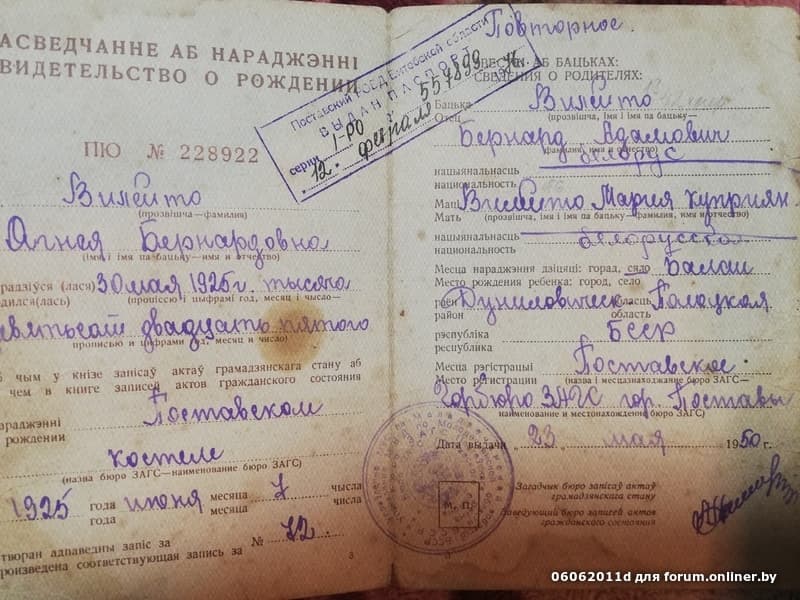 АСВЕДЧАННЕ АБ НАРАДЖЭННІ
ВИДЕТЕЛЬСТВО О РОЖДЕНИИ
ПЮ № 228922
Вилейто
(прозвішча—фамилия)
Агнея Бернардовна
(імя і імя па бацьку—имя и отчество)
радзіўся (лася) 30 мая 1925 г. тысяча
одился(лась) (прописью и цифрами год, месяц и число—
евятьсот двадцать пятого
прописью и цифрами год, месяц и число)
б чым у кнізе запісаў актаў грамадзянскага стану аб
чем в книге записей актов гражданского состояния
нараджэнні
рождении
Поставском
костеле
(назва бюро ЗАГС—наименование бюро ЗАГС)
1925 года июня месяца 7 чысла
года месяца числа
творан адпаведны запіс за
произведена соответствующая запись за № 72
3
Повторное.
Поставский РОВД Витебской области
ВЫДАН ПАСПОРТ
серии I-ПО 557899
12 февраля 1976
ВЕСТКІ АБ БАЦЬКАХ:
СВЕДЕНИЯ О РОДИТЕЛЯХ:
Бацька
Отец
Вилейто
(прозвішча, імя і імя па бацьку—
Бернард Адамович
фамилия, имя и отчество)
белорус
нацыянальнасць
национальность
Маці Вилейто Мария Куприян.
Мать (прозвішча, імя і імя па бацьку—фамилия, имя и отчество)
нацыянальнасць белорусская
национальность
Месца нараджэння дзіцяці: горад, сяло
Место рождения ребенка: город, село
раён Дуниловичск вобласць Полоцкая
район область
рэспубліка БССР
республика
Месца рэгістрацыі Поставское
Место регистрации (назва і месцазнаходжанне бюро ЗАГС—
Горбюро ЗАГС гор. Поставы
наименование и местонахождение бюро ЗАГС)
Дата выдачи 23 мая 1950 г.
М. П.
Загадчык бюро запісаў актаў
грамадзянскага стану
Заведующий бюро записей актов
гражданского состояния
06062011d для forum.onliner.by